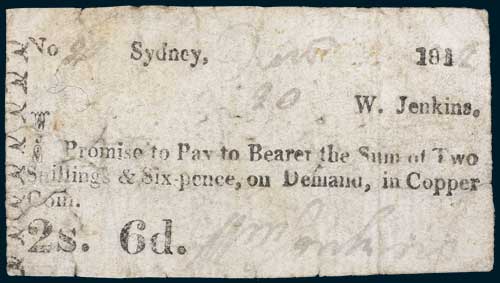 No Sydney, 181
20
W. Jenkins.
I Promise to Pay to Bearer the Sum of Two
Shillings & Six-pence, on Demand, in Copper
Coin.
2s. 6d.